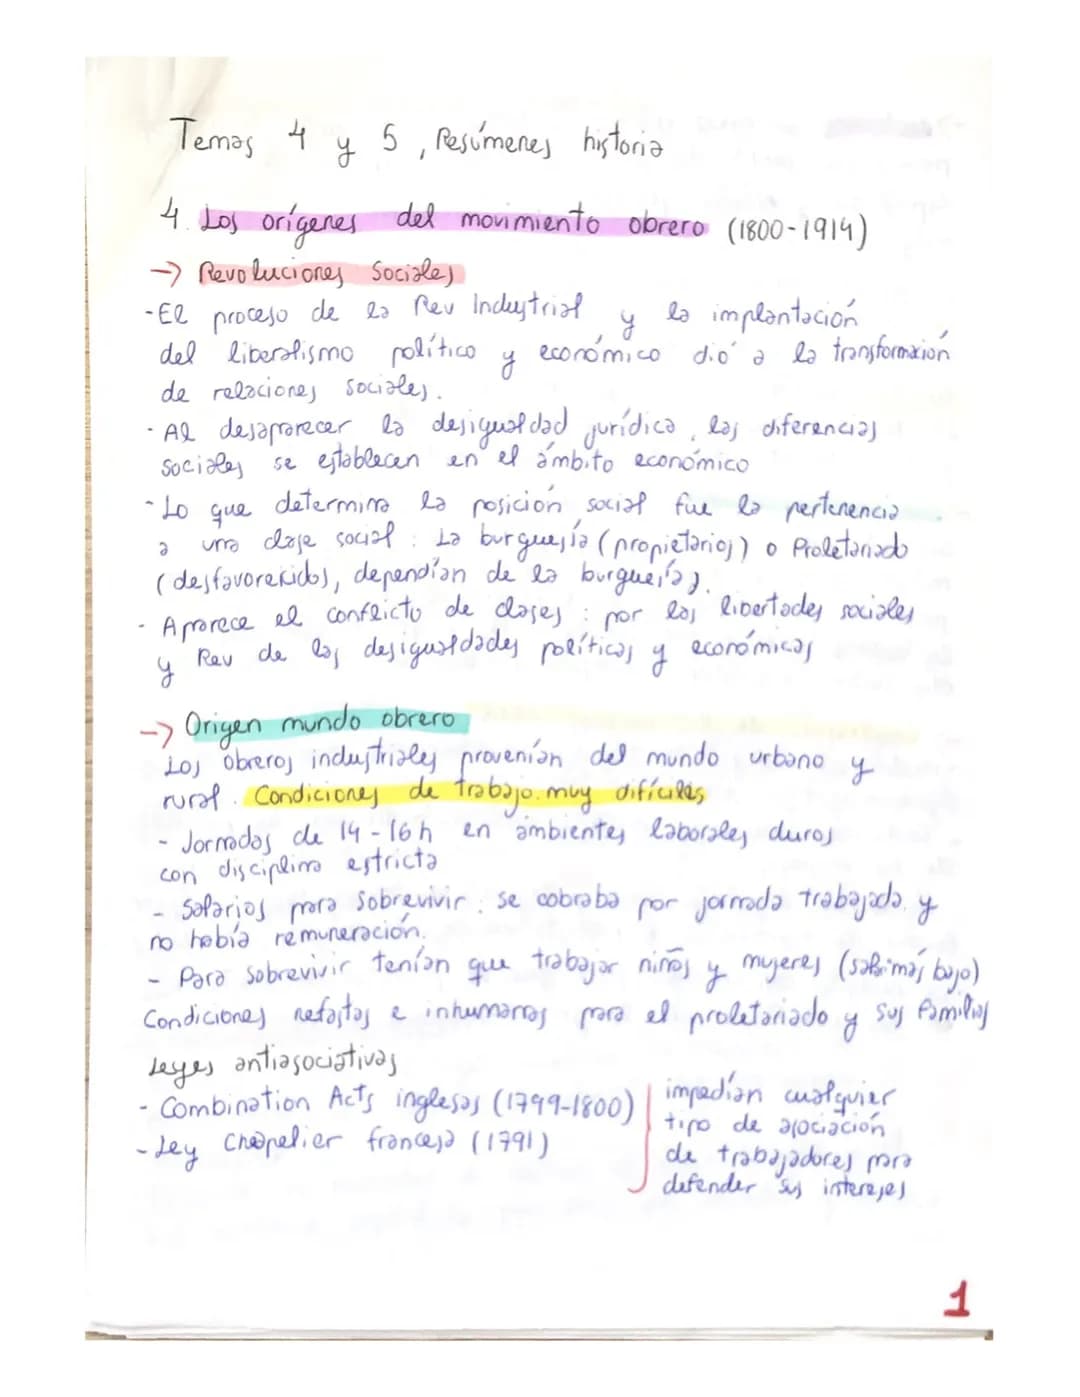 Temas 4 y 5, Resúmenes historia
4. Los orígenes del movimiento obrero (1800-1914)
→ Revoluciones Sociales
- El proceso de la Rev Industrial y la implantación
del liberalismo político y económico dió a la transformación
de relaciones sociales.
- Al desaparecer la desigualdad jurídica, las diferencias
sociales se establecen en el ámbito económico
- Lo que determina la posición social fue la pertenencia
a una clase social: La burguesía (propietarios) o Proletariado
(desfavorecidos, dependían de la burguesía).
- Aparece el conflicto de clases: por las libertades sociales
y Rev de las desigualdades políticas y económicas
→ Origen mundo obrero
Los obreros industriales provenían del mundo urbano y
rural. Condiciones de trabajo muy difíciles
- Jornadas de 14-16h en ambientes laborales duros
con disciplina estricta
- Salarios para sobrevivir: se cobraba por jornada trabajada y
no había remuneración.
- Para sobrevivir tenían que trabajar niños y mujeres (sal.más bajo)
Condiciones nefastas e inhumanas para el proletariado y sus familias
Leyes antiasociativas
- Combination Acts inglesas (1799-1800)
- Ley Chapelier francesa (1791)
impedían cualquier
tipo de asociación
de trabajadores para
defender sus intereses
1